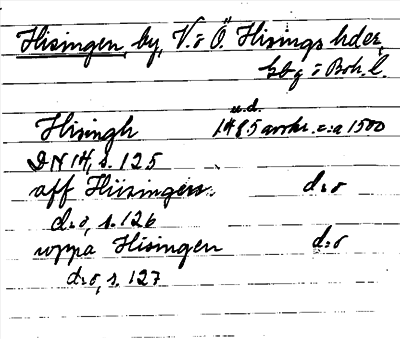 Hisingen, by, V. o Ö. Hisings hder,
Gbg o Boh. l.
u.d.
Hisingh 1485 avskr. c:a 1500
DN 14, s. 125
aff Hiisingen d:o
d:o, s. 126
uppa Hisingen d:o
d:o, s. 127